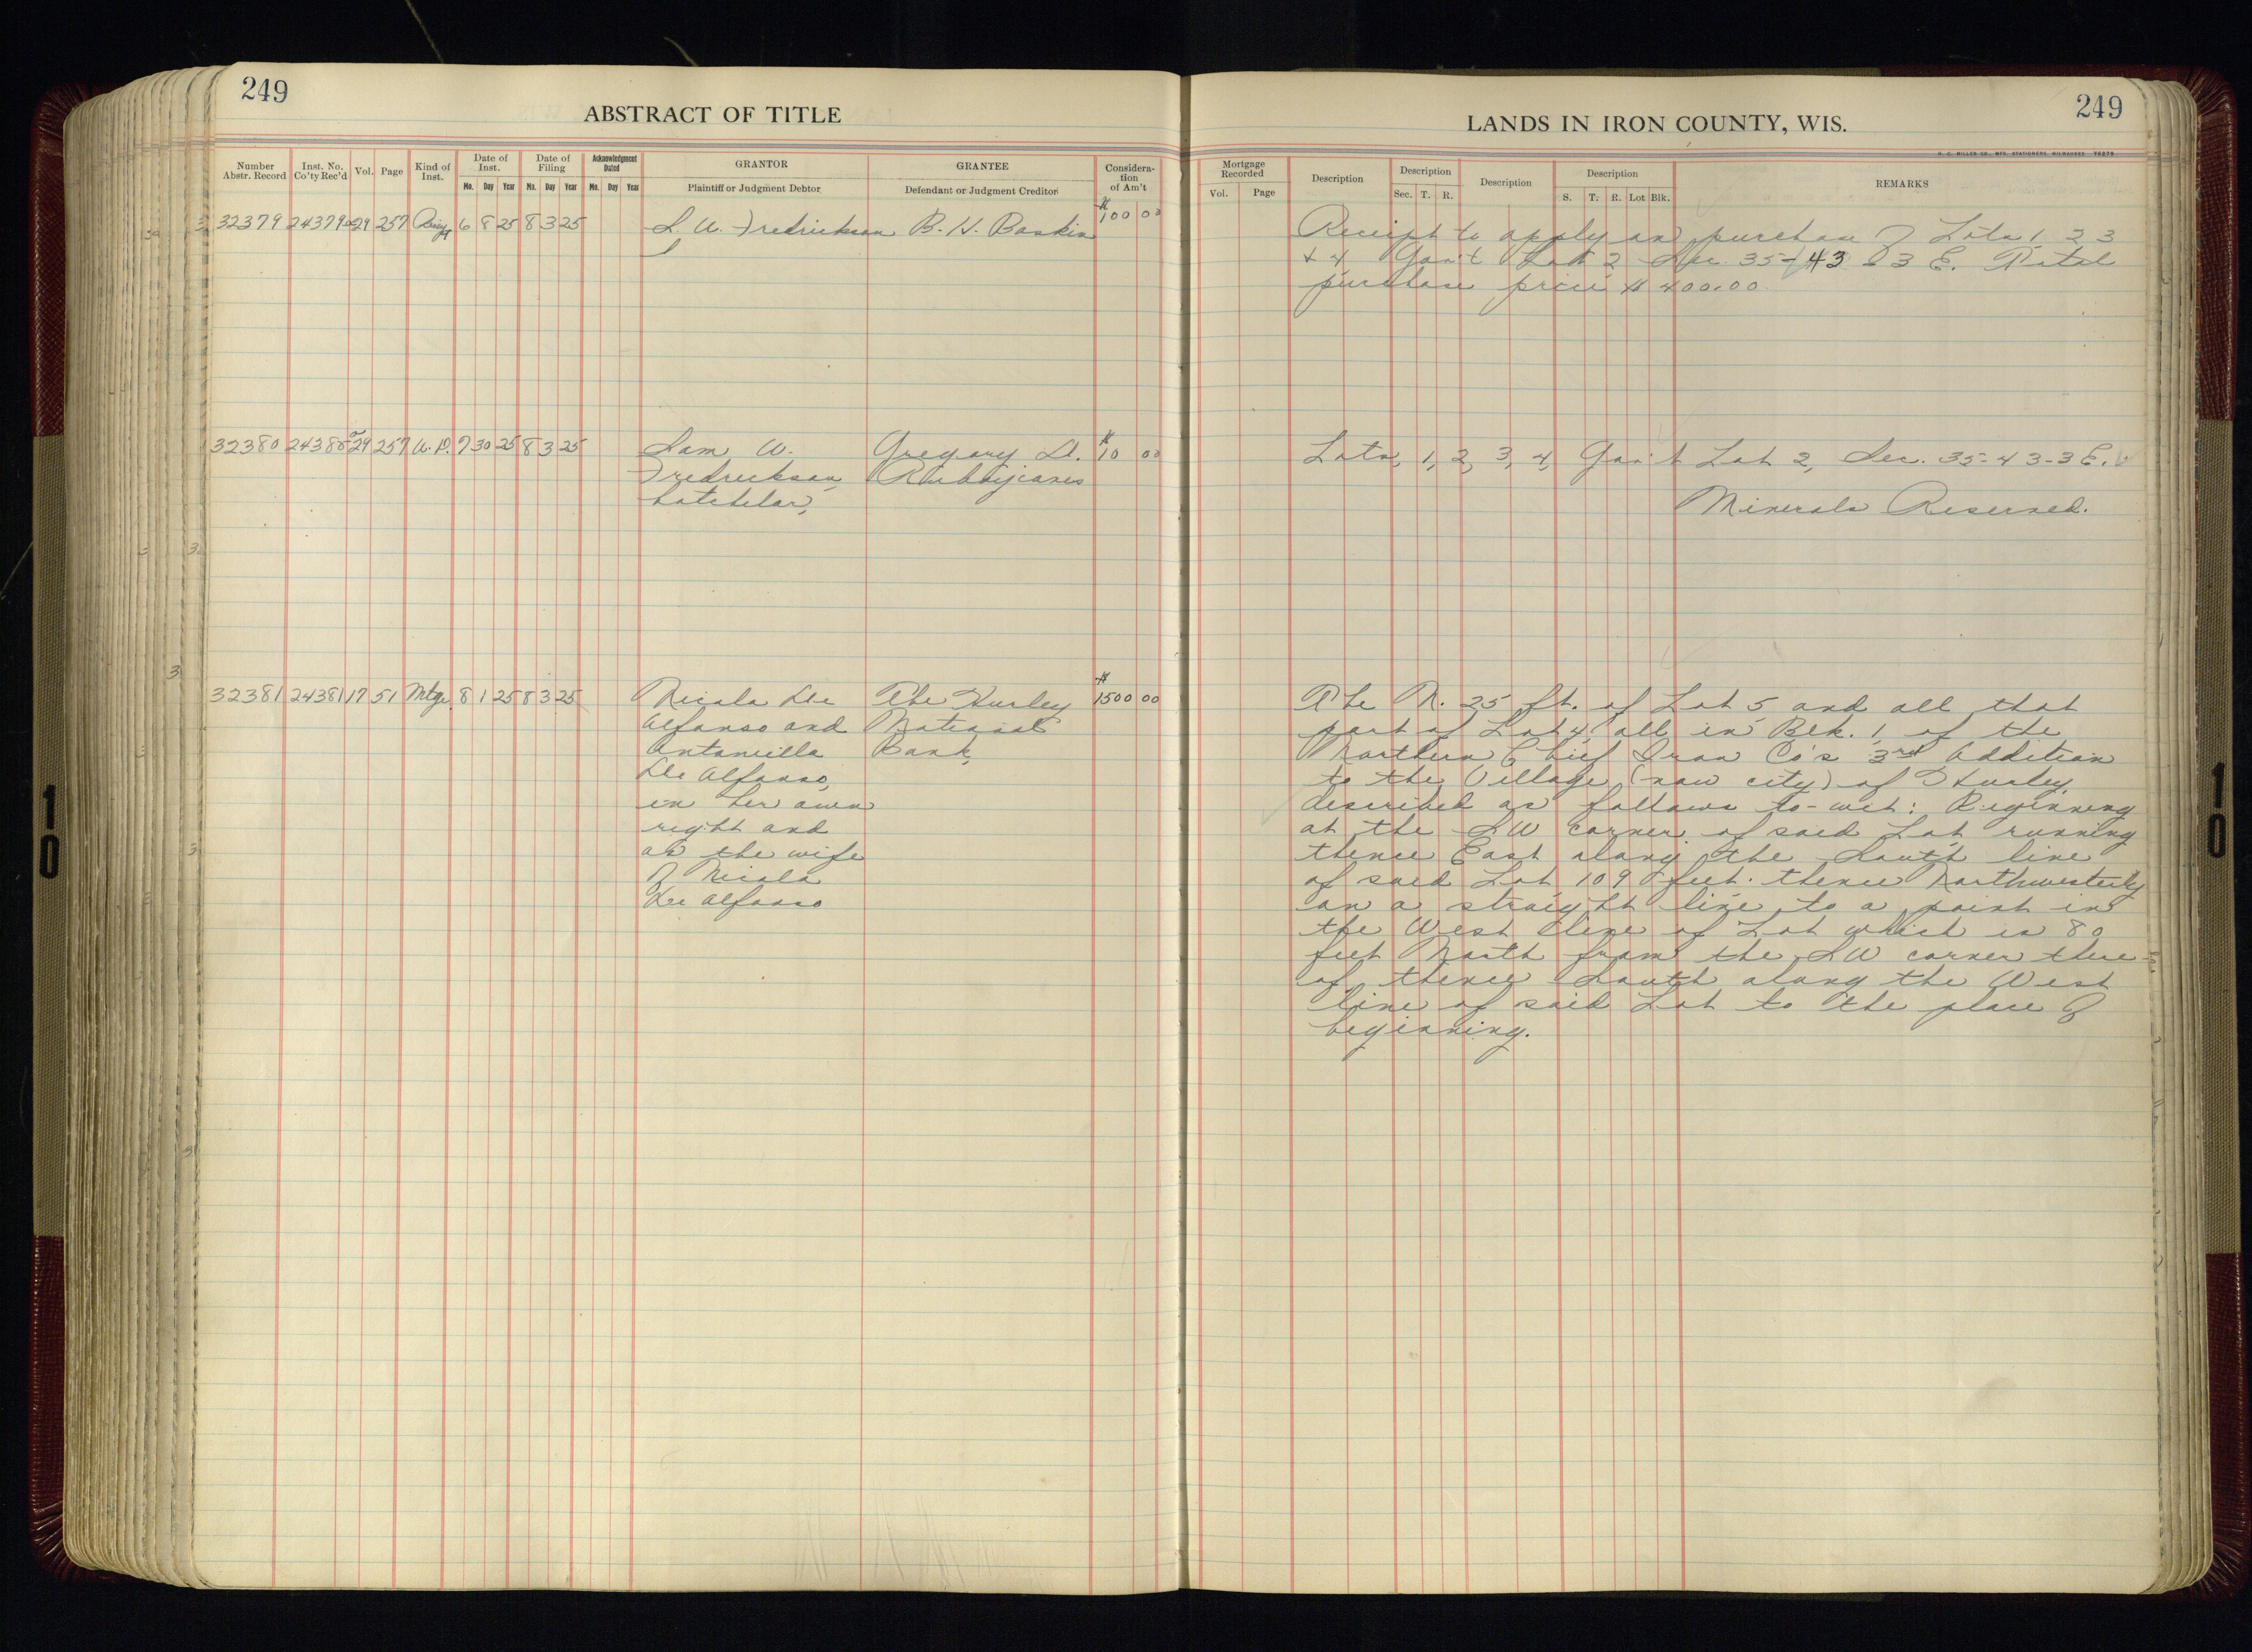 249
ABSTRACT OF TITLE
Number Abstr. Record
Inst. No. Co'ty Rec'd
Vol.
Page
Kind of Inst.
Date of Inst.
Mo. Day Year
Date of Filing
Mo. Day Year
Acknowledgment Dated
Mo. Day Year
GRANTOR
Plaintiff or Judgment Debtor
GRANTEE
Defendant or Judgment Creditor
Considera-
tion
of Am't
32379 24379 29 257 6 8 25 8 3 25 S. W. Fredrickson B. H. Baskin $100 00
32380 24380 29 257 W.D. 7 30 25 8 3 25 Sam W. Gregory A. $10 00
Fredrickson,
batchelor,
32381 24381 17 51 Mtge. 8 1 25 8 3 25 Nicola De The Hurley $1500 00
Alfonso and National
Antonietta Bank,
De Alfonso,
in her own
right and
as the wife
of Nicola
De Alfonso
LANDS IN IRON COUNTY, WIS.
249
H. C. MILLER CO., MFG. STATIONERS, MILWAUKEE 76279
Mortgage Recorded
Vol. Page
Description
Description
Sec. T. R.
Description
Description
S. T. R. Lot Blk.
REMARKS
Receipt to apply on purchase of Lots 1, 2 3
& 4 Gov't Lot 2 Sec. 35-43-3 E. Total
purchase price $400.00
Lots, 1, 2, 3, 4, Gov't Lot 2, Sec. 35-43-3 E.
Minerals Reserved.
The N. 25 ft. of Lot 5 and all that
part of Lot 4 all in Blk. 1, of the
Northern Chief Iron Co's 3rd Addition
to the Village (now city) of Hurley,
described as follows to-wit: Beginning
at the SW corner of said Lot running
thence East along the South line
of said Lot 109 feet. thence Northwesterly
on a straight line to a point in
the West line of Lot which is 80
feet North from the SW corner there-
of thence South along the West
line of said Lot to the place of
beginning.
10
10